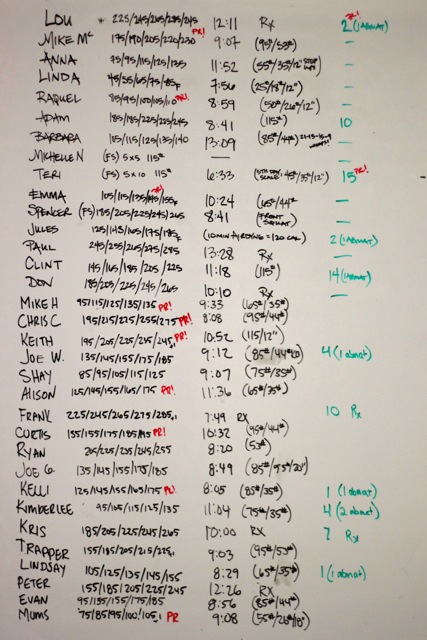 LOU 225/245/265/255/245 12:11 RX 2 (1 ABMAT) PR!
MIKE Mc 175/190/205/220/230 PR! 9:07 (95#/53#) –
ANNA 75/95/115/125/135 11:52 (55#/35#/12" STEP UPS) –
LINDA 45/55/65/75/85F 7:56 (25#/18#/12") –
RAQUEL 85/95/100/105/110 PR! 8:59 (50#/26#/12") –
ADAM 185/185/225/235/245 8:41 (115#) 10
BARBARA 105/115/125/135/140 13:09 (85#/44#) 21-15-15-9 –
MICHELLE N (FS) 5x5 115# — –
TERI (FS) 5x10 115# 6:33 45#/35#/12") 15 PR!
EMMA 105/115/135/145/155F PR! 10:24 (65#/44#) –
SPENCER (FS) 185/205/225/245/265 8:41 (FRONT SQUAT) –
JULES 125/145/165/175/185F (10 MIN AIRDYNE = 120 CAL) –
PAUL 245/255/265/275/285 13:28 RX 2 (1 ABMAT)
CLINT 145/165/185/205/225 11:18 (115#) 14 (1 ABMAT)
DON 185/205/225/245/265 10:10 RX –
MIKE H 95/115/125/135/135 PR! 9:33 (65#/35#)
CHRIS C 195/215/275/255/275 PR! 8:08 (95#/44#)
KEITH 195/205/225/235/245 PR! 10:52 (115/12")
JOE W. 135/145/155/175/185 9:12 (85#/44#) 4 (1 abmat)
SHAY 85/95/105/115/125 9:07 (75#/35#)
ALISON 125/145/155/165/175 PR! 11:36 (65#/35#)
FRANK 225/245/265/275/285 7:49 RX 10 Rx
CURTIS 135/155/175/185/195 PR! 10:32 (95#/44#)
RYAN 205/225/235/245/255 8:20 (53#)
JOE G. 135/145/155/175/185 8:49 (85#/53#/20")
KELLI 125/145/155/165/175 PR! 8:05 (85#/35#) 1 (1 abmat)
KIMBERLEE 95/105/115/125/135 11:04 (75#/35#) 4 (2 abmat)
KRIS 185/205/225/245/265 10:00 RX 7 Rx
TRAPPER 155/185/205/215/225 9:03 (95#/53#)
LINDSAY 105/125/135/145/155 8:29 (65#/35#) 1 (1 abmat)
PETER 155/185/205/225/245 12:26 RX
EVAN 95/135/155/175/185 8:56 (85#/44#)
MUMS 75/85/95/100/105 PR 9:08 (55#/26#/18")